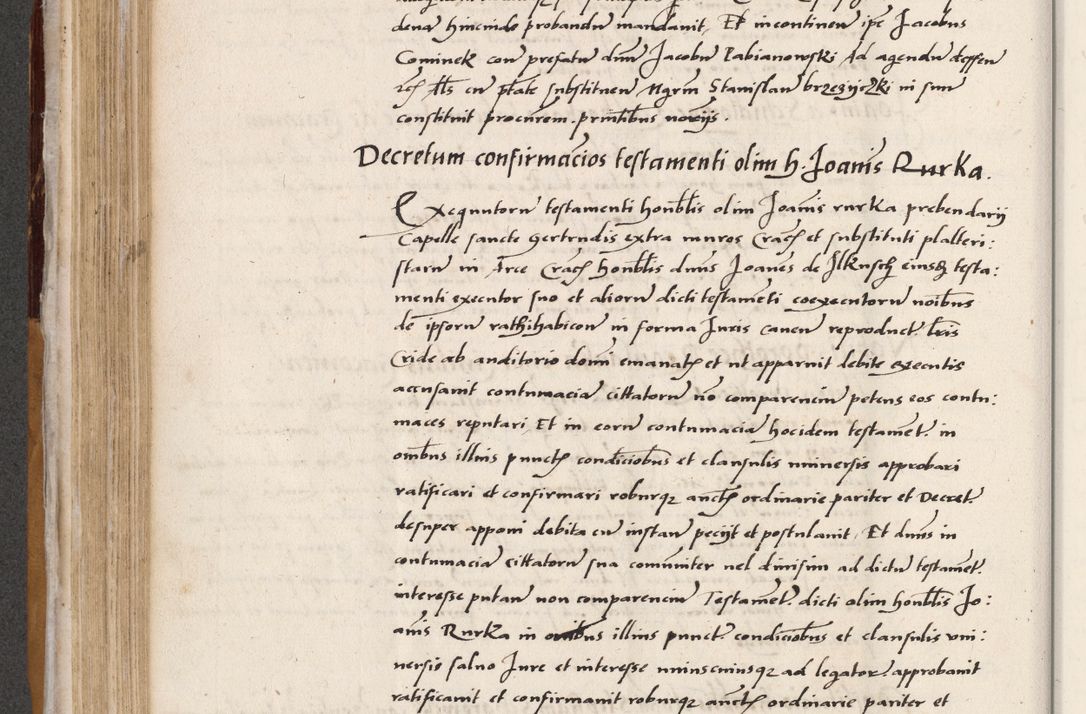 denar hincinde probandum mandavit, Et incontinen ipe Jacobus
Cominek con prefatum dnum Jacobum Labianowski Ad agendum deffen
cum ptate substituen Mgrm Stanislaum brzezyczki in suum
constituit procurem. pntibus notrijs.
Decretum confirmacios testamenti olim h. Joanis Rurka.
Exequutorum testamenti honblis olim Joanis rurka prebendarij
Capelle sancte gertrudis extra muros Crac et substituti psalteri:
starum in Arce Crac honblis dnus Joanes de Ilkusch eiusq testa:
menti executor suo et aliorum dicti testameti coexecutorum noibus
de ipsorum rathihabicon in forma Iuris caven reproduct. lris
Cride ab auditorio domi emanat et ut apparuit debite executis
accusavit contumaciam cittatorum no comparencium petens eos contu:
maces reputari, Et in eorum contumaciam hocidem testamet. in
omibus illius punct condiciobus et clausulis universis approbari
ratificari et confirmari roburqz auct ordinarie pariter et Decret.
desuper apponi debita cum instan pecijt et postulavit, Et dnus in
contumaciam cittatorum sua comuniter vel divisim ad dictum testamet.
interesse putan non comparencium Testamet. dicti olim honblis Jo:
anis Rurka in omibus illius punct condiciobus et clausulis uni:
versis salvo Jure et interesse uniuscuiusqz ad legator. approbavit
ratificavit et confirmavit roburqz auct ordinarie pariter et